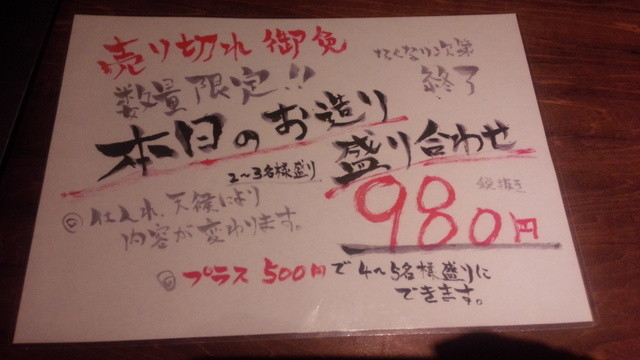 売り切れ御免
なくなり次第
終了
数量限定!!
本日のお造り
盛り合わせ
2〜3名様盛り
980円
税抜き
◎仕入れ、天候により
内容が変わります。
◎プラス500円で4〜5名様盛りに
できます。